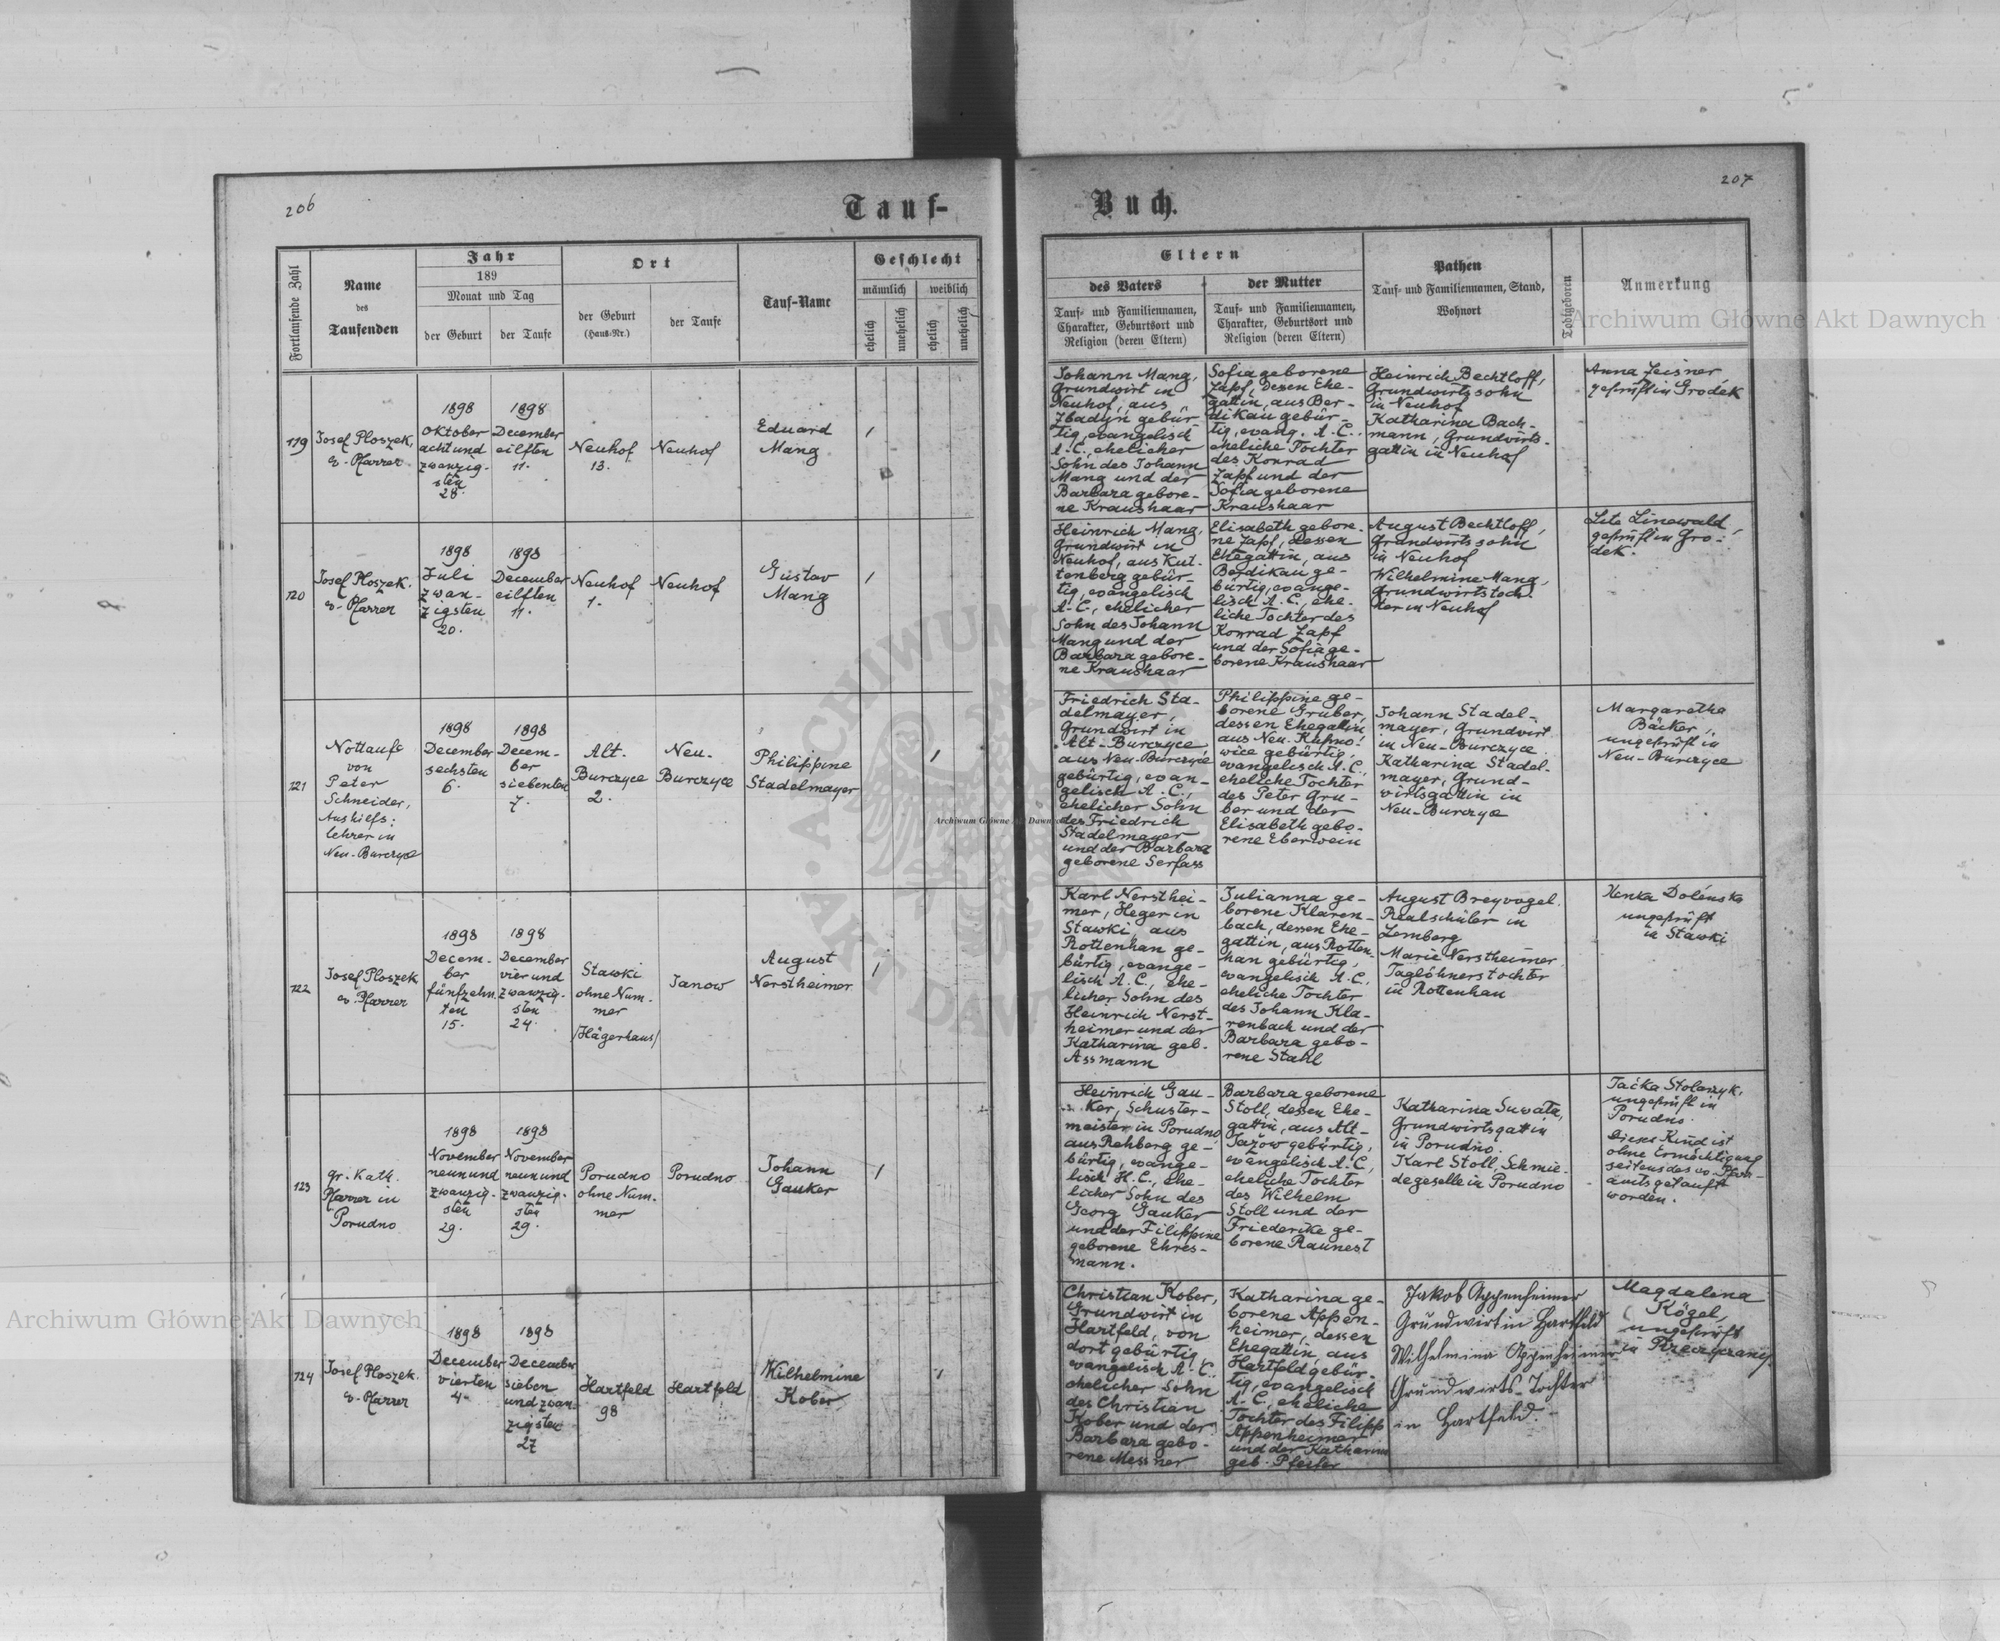 206
Tauf-
Fortlaufende Zahl
Name
des
Taufenden
Jahr
189
Monat und Tag
der Geburt
der Taufe
Ort
der Geburt
(Haus-Nr.)
der Taufe
Tauf-Name
Geschlecht
männlich
weiblich
ehelich
unehelich
ehelich
unehelich
119
Josef Ploszek,
ev. Pfarrer
1898
Oktober
acht und
zwanzig-
sten
28.
1898
December
eilften
11.
Neuhof
13.
Neuhof
Eduard
Mang
1
120
Josef Ploszek.
ev. Pfarrer
1898
Juli
zwan-
zigsten
20.
1898
December
eilften
11.
Neuhof
1.
Neuhof
Gustav
Mang
1
121
Nottaufe
von
Peter
Schneider,
Aushilfs:
lehrer in
Neu-Burczyce
1898
December
sechsten
6.
1898
Decem-
ber
siebenten
7.
Alt-
Burczyce
2.
Neu-
Burczyce
Philippine
Stadelmayer
1
122
Josef Ploszek
ev. Pfarrer
1898
Decem-
ber
fünfzehn-
ten
15.
1898
December
vier und
zwanzig-
sten
24.
Stawki
ohne Num-
mer
/Hägerhaus/
Janow
August
Nerstheimer
1
123
gr. Kath.
Pfarrer in
Porudno
1898
November
neun und
zwanzig-
sten
29.
1898
November
neun und
zwanzig-
sten
29.
Porudno
ohne Num-
mer
Porudno
Johann
Gauker
1
124
Josef Ploszek.
ev. Pfarrer
1898
December
vierten
4.
1898
December
sieben
und zwan-
zigsten
27
Hartfeld
98
Hartfeld
Wilhelmine
Kober
1
207
Buch.
Eltern
des Vaters
Tauf- und Familiennamen,
Charakter, Geburtsort und
Religion (deren Eltern)
der Mutter
Tauf- und Familiennamen,
Charakter, Geburtsort und
Religion (deren Eltern)
Pathen
Tauf- und Familiennamen, Stand,
Wohnort
Todtgeboren
Anmerkung
Johann Mang,
Grundwirt in
Neuhof, aus
Zbadyn gebür-
tig, evangelisch
A.C., ehelicher
Sohn des Johann
Mang und der
Barbara gebore-
ne Kraushaar
Sofia geborene
Zapf, dessen Ehe-
gattin, aus Ber-
dikau gebür-
tig, evang. A.C.,
eheliche Tochter
des Konrad
Zapf und der
Sofia geborene
Kraushaar
Heinrich Bechtloff,
Grundwirtssohn
in Neuhof
Katharina Bach-
mann, Grundwirts-
gattin in Neuhof
Anna Zeisner
geprüft in Grodek
Heinrich Mang,
Grundwirt in
Neuhof, aus Kut-
tenberg gebür-
tig, evangelisch
A.C., ehelicher
Sohn des Johann
Mang und der
Barbara gebore-
ne Kraushaar
Elisabeth gebore-
ne Zapf, dessen
Ehegattin, aus
Berdikau ge-
bürtig, evange-
lisch A.C., ehe-
liche Tochter des
Konrad Zapf
und der Sofia ge-
borene Kraushaar
August Bechtloff,
Grundwirtssohn
in Neuhof
Wilhelmine Mang,
Grundwirtstoch-
ter in Neuhof
Linewald,
geprüft in Gro-
dek.
Friedrich Sta-
delmayer,
Grundwirt in
Alt-Burczyce,
aus Neu-Burczyce
gebürtig, evan-
gelisch A.C.,
ehelicher Sohn
des Friedrich
Stadelmayer
und der Barbara
geborene Serfass
Philippine ge-
borene Gruber,
dessen Ehegattin,
aus Neu-Kupno-
wice gebürtig,
evangelisch A.C.,
eheliche Tochter
des Peter Gru-
ber und der
Elisabeth gebo-
rene Eberwein
Johann Stadel-
mayer, Grundwirt
in Neu-Burczyce.
Katharina Stadel-
mayer, Grund-
wirtsgattin in
Neu-Burczyce
Margaretha
Bäcker,
ungeprüft in
Neu-Burczyce
Karl Nersthei-
mer, Heger in
Stawki, aus
Rottenhan ge-
bürtig, evange-
lisch A.C., ehe-
licher Sohn des
Heinrich Nerst-
heimer und der
Katharina geb.
Assmann
Julianna ge-
borene Klaren-
bach, dessen Ehe-
gattin, aus Rotten-
han gebürtig,
evangelisch A.C.,
eheliche Tochter
des Johann Kla-
renbach und der
Barbara gebo-
rene Stahl
August Breyvogel,
Realschüler in
Lemberg
Marie Nerstheimer
Taglöhnerstochter
in Rottenhan
Dolénska
ungeprüft
in Stawki
Heinrich Gau-
ker, Schuster-
meister in Porudno
aus Rehberg ge-
bürtig, evange-
lisch H.C., ehe-
licher Sohn des
Georg Gauker
und der Filippine
geborene Ehres-
mann.
Barbara geborene
Stoll, dessen Ehe-
gattin, aus Alt-
Jażow gebürtig,
evangelisch A.C.,
eheliche Tochter
des Wilhelm
Stoll und der
Friederike ge-
borene Raunest
Katharina Suwała,
Grundwirtsgattin
in Porudno.
Karl Stoll, Schmie-
degeselle in Porudno
Stolarzyk,
ungeprüft in
Porudno.
Dieses Kind ist
ohne Ermächtigung
seitens des ev. Pfarr-
amts getauft
worden.
Christian Kober,
Grundwirt in
Hartfeld, von
dort gebürtig
evangelisch A.C.,
ehelicher Sohn
des Christian
Kober und der
Barbara gebo-
rene Messner
Katharina ge-
borene Appen-
heimer, dessen
Ehegattin aus
Hartfeld gebür-
tig, evangelisch
A.C., eheliche
Tochter des Filipp
Appenheimer
und der Katharina
geb. Pfeifer
Jakob Appenheimer
Grundwirt in Hartfeld
Wilhelmina Appenheimer
Grundwirts-Tochter
in Hartfeld.
Magdalena
Kögel,
ungeprüft
in Przeczyczany
Archiwum Główne Akt Dawnych
Archiwum Główne Akt Dawnych
Archiwum Główne Akt Dawnych